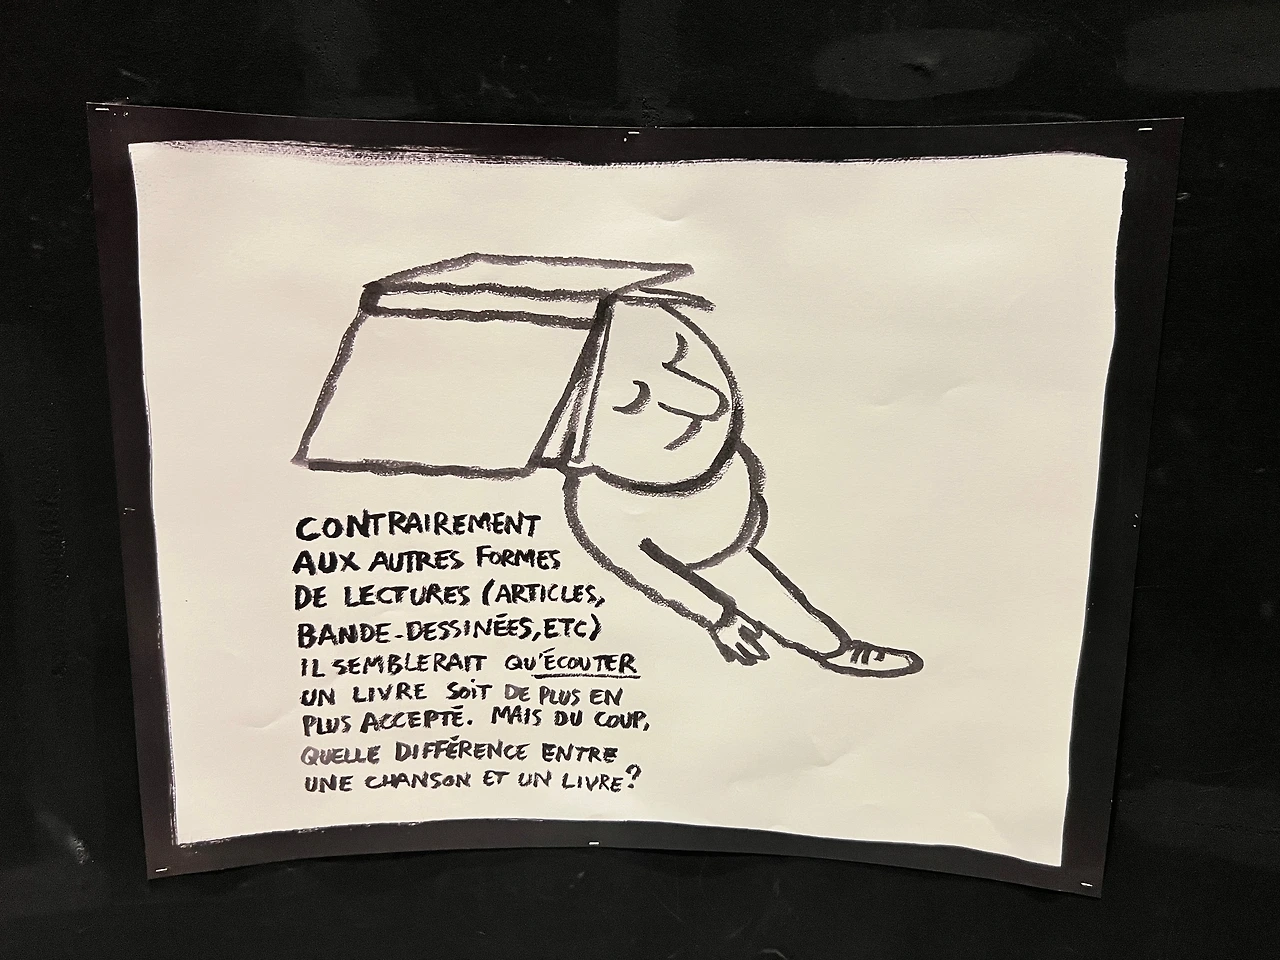 CONTRAIREMENT
AUX AUTRES FORMES
DE LECTURES (ARTICLES,
BANDE-DESSINÉES, ETC)
IL SEMBLERAIT QU'ÉCOUTER
UN LIVRE SOIT DE PLUS EN
PLUS ACCEPTÉ. MAIS DU COUP,
QUELLE DIFFÉRENCE ENTRE
UNE CHANSON ET UN LIVRE?